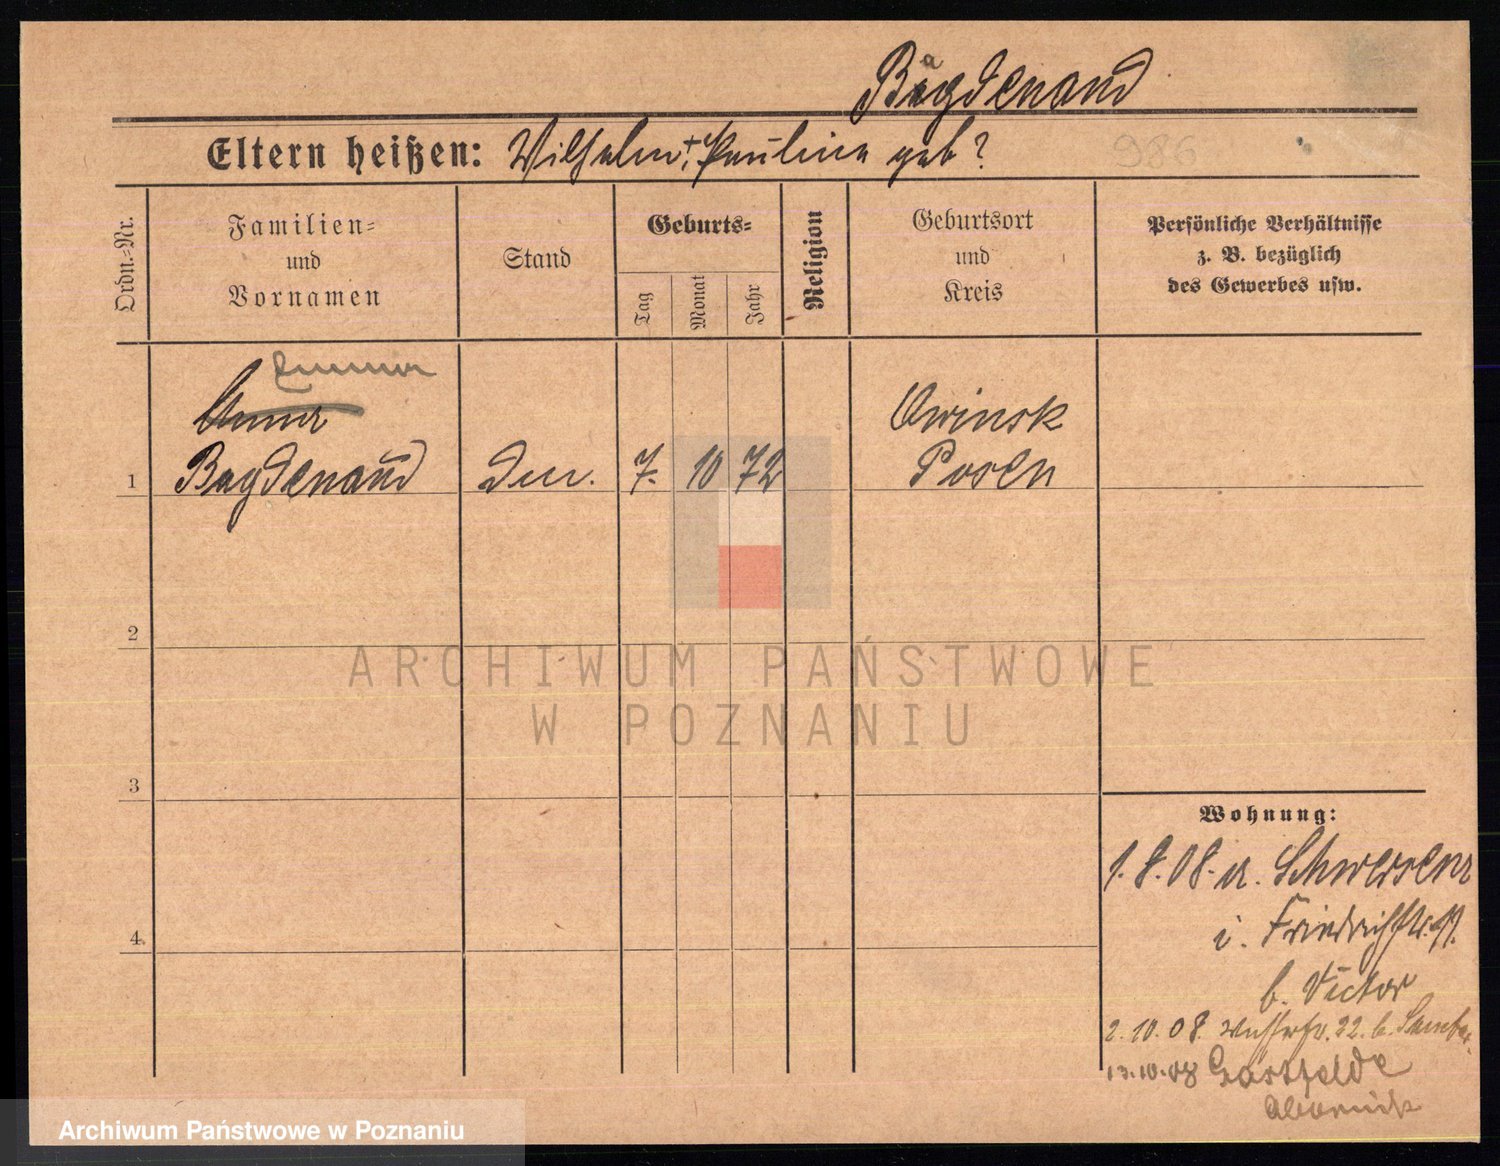 Bagdenand
Eltern heißen: Wilhelm †, Pauline geb?
986
Ordn.-Nr.
Familien-
und
Vornamen
Stand
Geburts-
Tag
Monat
Jahr
Religion
Geburtsort
und
Kreis
Persönliche Verhältnisse
z. B. bezüglich
des Gewerbes usw.
Emma
Anna
1 Bagdenand 7. 10 72
Owinsk
Posen
2
3
4
Wohnung:
1.8.08. a. Schwersenz
i. Friedrichstr.
b. Victor
2.10.08. 22. b.
13.10.08
Obornik
ARCHIWUM PAŃSTWOWE
W POZNANIU
Archiwum Państwowe w Poznaniu